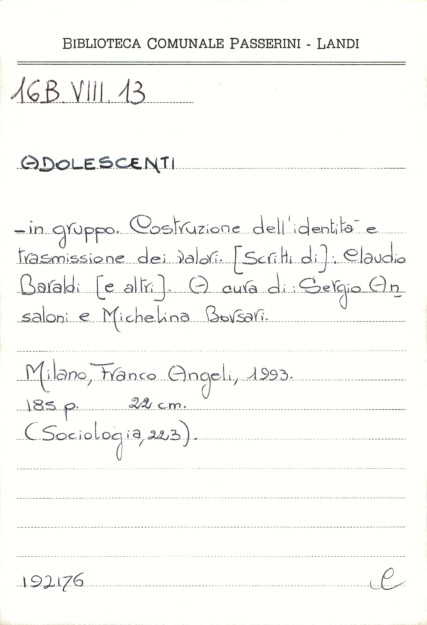 BIBLIOTECA COMUNALE PASSERINI - LANDI
16B.VIII.13
ADOLESCENTI
- in gruppo. Costruzione dell'identità e
trasmissione dei valori. [Scritti di]: Claudio
Baraldi [e altri]. A cura di: Sergio An
saloni e Michelina Borsari.
Milano, Franco Angeli, 1993.
185 p. 22 cm.
(Sociologia, 223).
192176 C